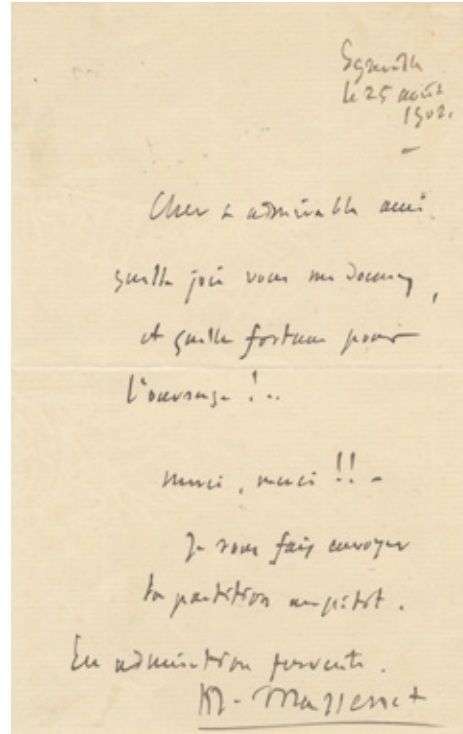 Egreville
le 25 août
1902.
–
Cher & admirable ami.
quelle joie vous me donnez,
et quelle fortune pour
l'ouvrage !..
Merci, merci !! –
Je vous fais envoyer
la partition au plutôt.
En admiration fervente.
M. Massenet